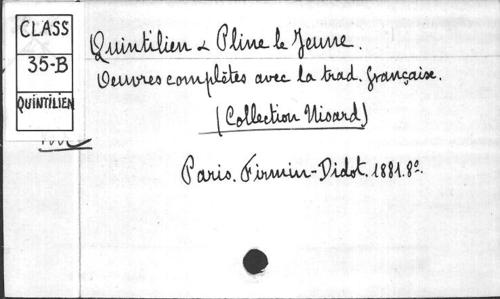 CLASS
35-B
QUINTILIEN
Quintilien & Pline le Jeune.
Oeuvres complètes avec la trad. française.
(Collection Nisard)
Paris. Firmin-Didot. 1881. 8º.